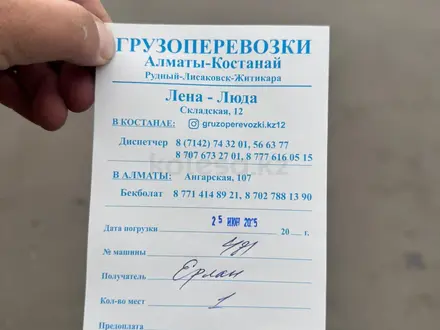 ГРУЗОПЕРЕВОЗКИ
Алматы-Костанай
Рудный-Лисаковск-Житикара
Лена - Люда
Складская, 12
В КОСТАНАЕ: gruzoperevozki.kz12
Диспетчер 8 (7142) 74 32 01, 56 63 77
8 707 673 27 01, 8 777 616 05 15
kolesa.kz
В АЛМАТЫ: Ангарская, 107
Бекболат 8 771 414 89 21, 8 702 788 13 90
Дата погрузки 25 ИЮН 2025 20 г.
№ машины 481
Получатель Ерлан
Кол-во мест 1
Предоплата